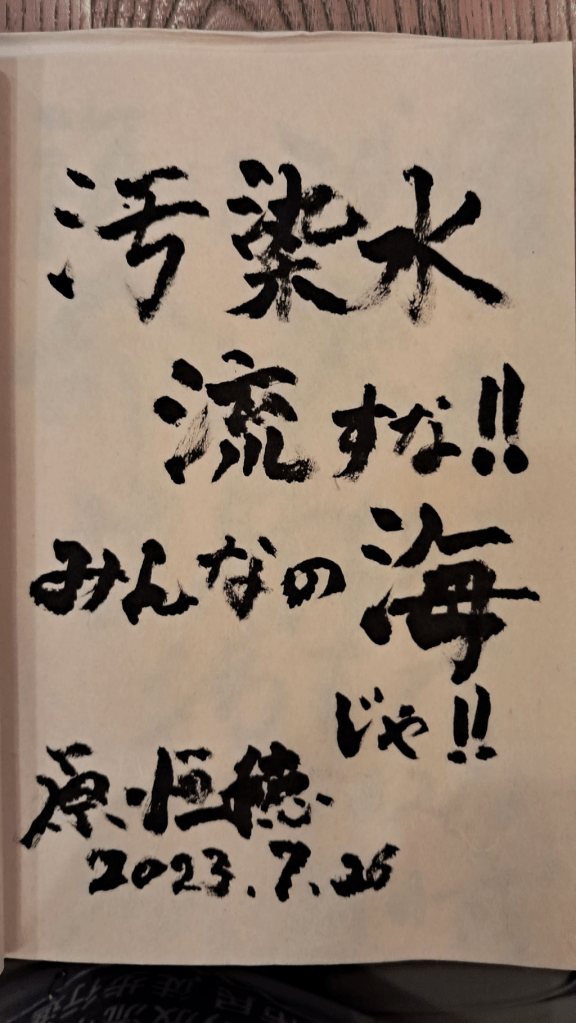 汚染水
流すな!!
みんなの海
じゃ!!
原・恒徳
2023.7.26